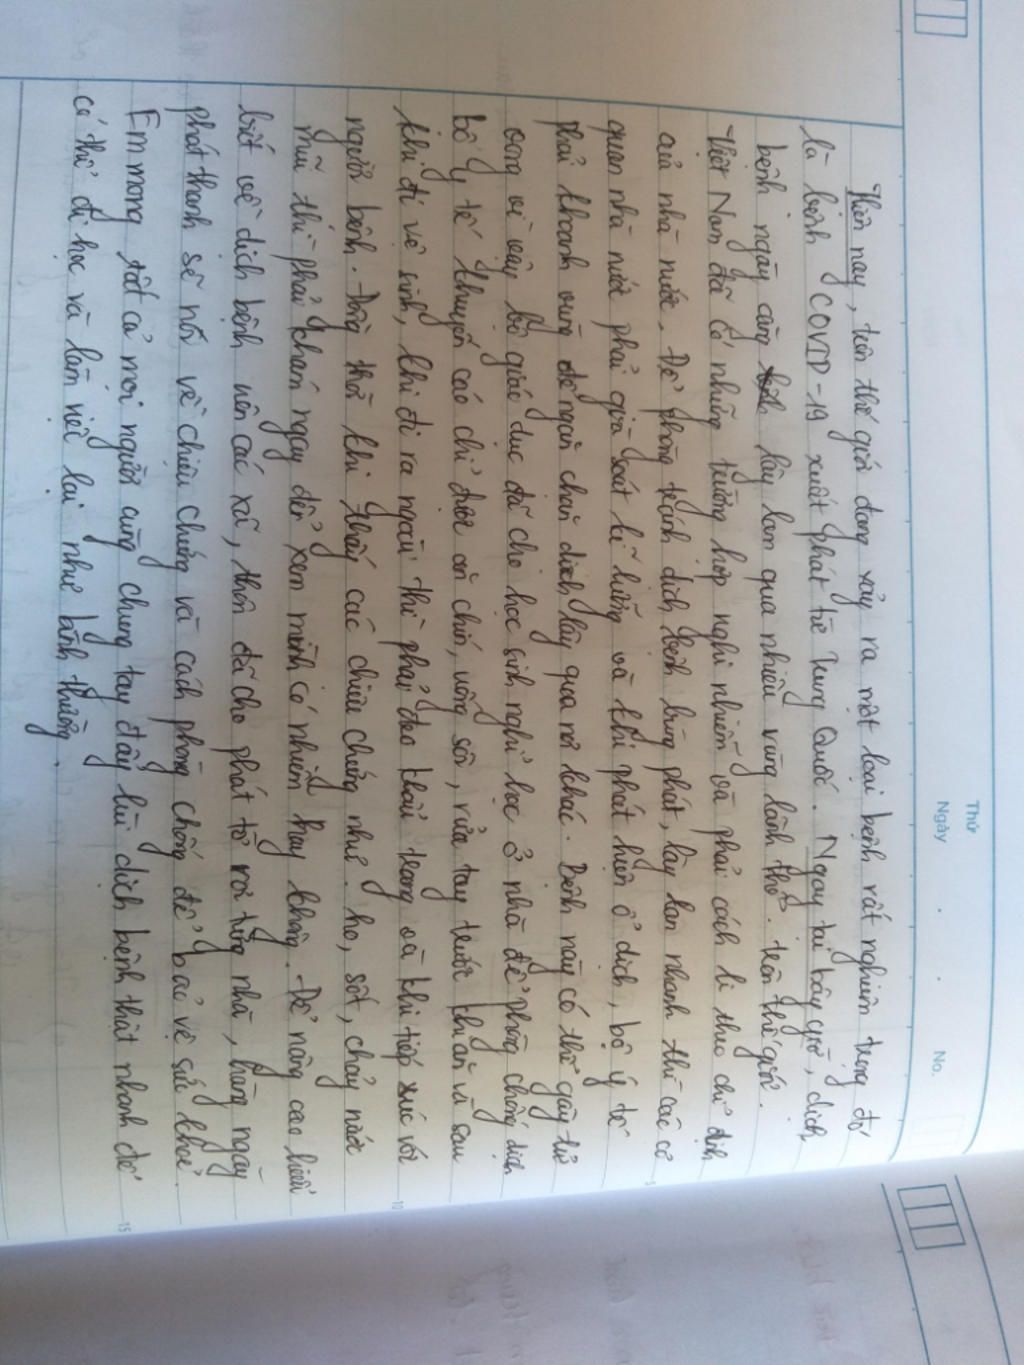 Thứ
Ngày
No.
Hiện nay, trên thế giới đang xảy ra một loại bệnh rất nghiêm trọng đó
là bệnh COVID-19 xuất phát từ Trung Quốc. Ngay tại bây giờ, dịch
bệnh ngày càng lây lan qua nhiều vùng lãnh thổ trên thế giới.
Việt Nam đã có những trường hợp nghi nhiễm và phải cách li theo chỉ định
của nhà nước. Để phòng tránh dịch bệnh bùng phát, lây lan nhanh thì các cơ
quan nhà nước phải giám sát kĩ lưỡng và khi phát hiện ổ dịch, bộ y tế
5
phải khoanh vùng để ngăn chặn dịch lây qua nơi khác. Bệnh này có thể gây tử
vong vì vậy bộ giáo dục đã cho học sinh nghỉ học ở nhà để phòng chống dịch
bộ y tế khuyến cáo chỉ được ăn chín, uống sôi, rửa tay trước khi ăn và sau
khi đi vệ sinh, khi đi ra ngoài thì phải đeo khẩu trang và khi tiếp xúc với
người bệnh. Đồng thời khi thấy các chiệu chứng như: ho, sốt, chảy nước
10
mũi thì phải khám ngay để xem mình có nhiễm hay không. Để nâng cao hiểu
biết về dịch bệnh nên các xã, thôn đã cho phát tờ rơi từng nhà, hàng ngày
phát thanh sẽ nói về chiệu chứng và cách phòng chống để bảo vệ sức khoẻ.
Em mong tất cả mọi người cùng chung tay đẩy lùi dịch bệnh thật nhanh để
có thể đi học và làm việc lại như bình thường.
15